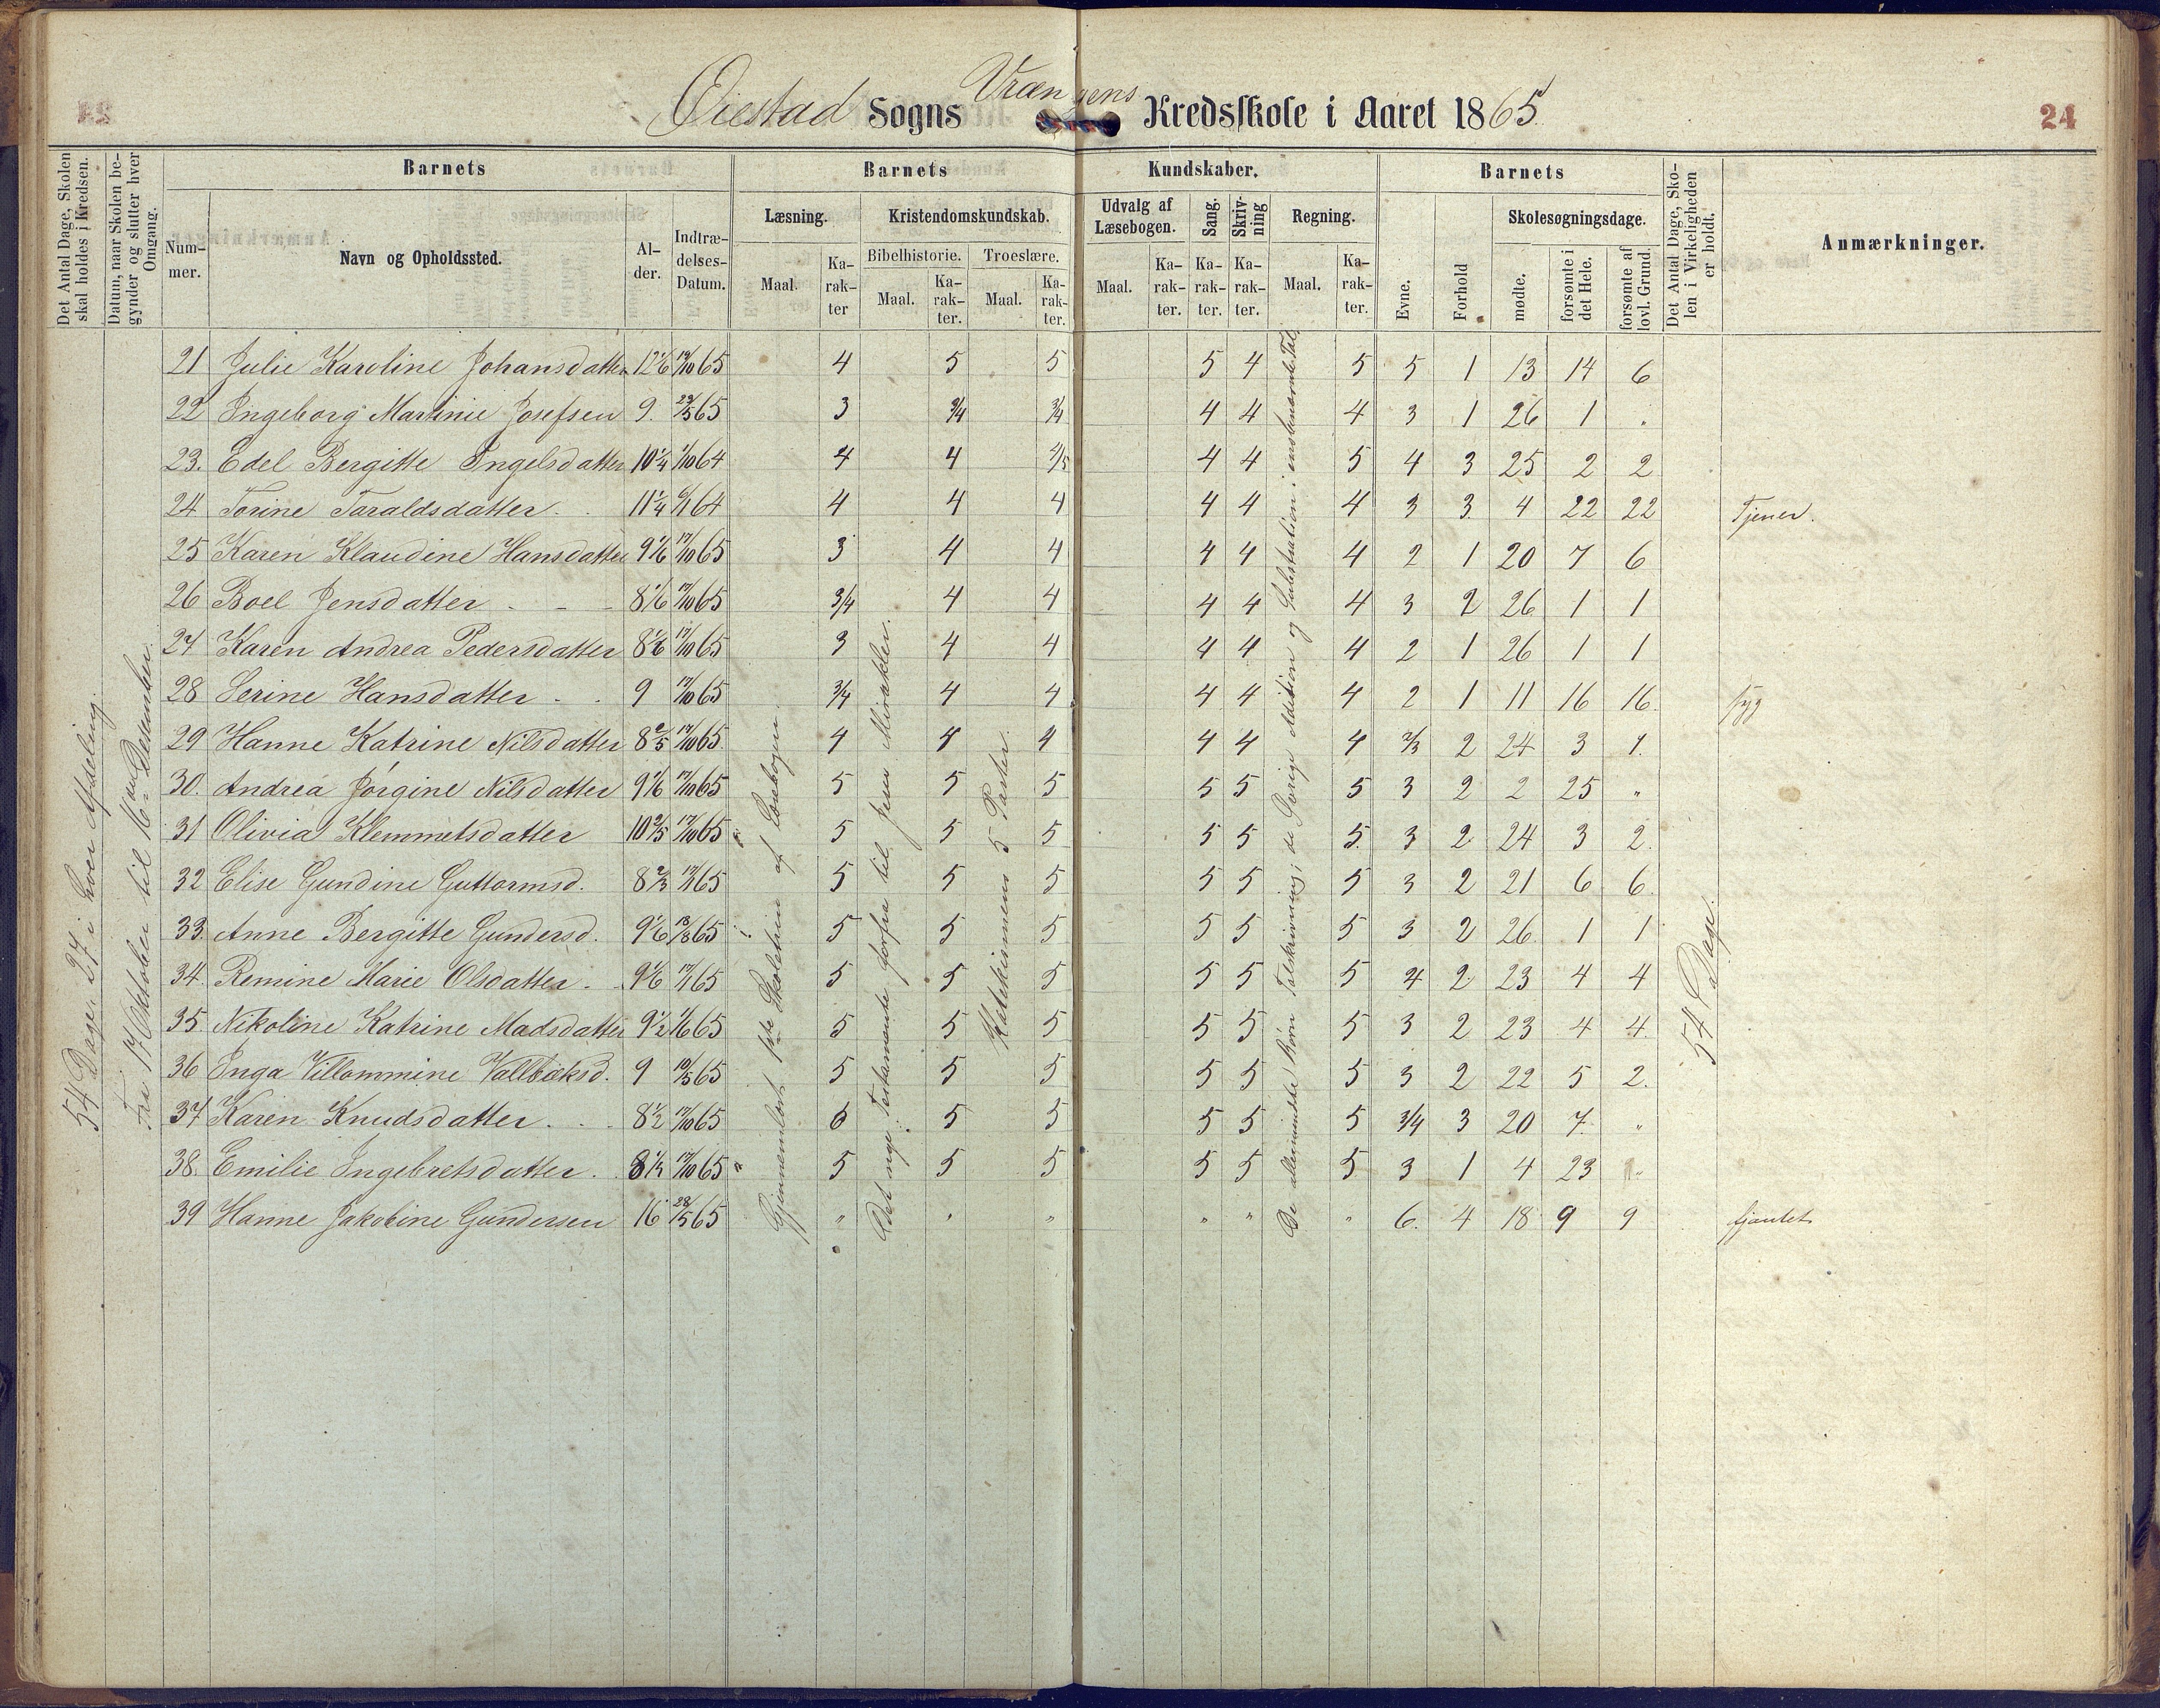 Øiestad Sogns Vrængens Kredsskole i Aaret 1865.
24
Det Antal Dage, Skolen skal holdes i Kredsen.
Datum, naar Skolen begynder og slutter hver Omgang.
Barnets
Nummer.
Navn og Opholdssted.
Alder.
Indtrædelses-Datum.
Barnets Kundskaber.
Læsning.
Maal.
Karakter
Kristendomskundskab.
Bibelhistorie.
Maal.
Karakter.
Troeslære.
Maal.
Karakter.
Udvalg af Læsebogen.
Maal.
Karakter.
Sang.
Karakter.
Skrivning
Karakter.
Regning.
Maal.
Karakter.
Barnets
Evne.
Forhold
Skolesøgningsdage.
mødte.
forsømte i det Hele.
forsømte af lovl. Grund.
Det Antal Dage, Skolen i Virkeligheden er holdt.
Anmærkninger.
54 Dage. 27 i hver Afdeling.
Fra 17 Oktober til 16 Desember.
Gjennemlæst 1ste Skoletrin af Læsebogen.
Det nye Testamente forfra til Jesu Mirakler.
Katekismens 5 Parter.
De allermindste Børn Talskrivning; de Øvrige Addition og Subtraktion i ensbenævnte Tal.
54 Dage.
21 Julie Karoline Johansdatter 12 1/6 19/10 65 4 5 5 5 4 5 5 1 13 14 6
22 Ingeborg Martinie Josefsen 9. 29/5 65 3 3/4 3/4 4 4 4 3 1 26 1 "
23. Edel Bergitte Ingelsdatter 10 1/4 1/10 64 4 4 4/5 4 4 5 4 3 25 2 2
24 Torine Taraldsdatter. 11 1/4 6/1 64 4 4 4 4 4 4 3 3. 4 22 22 Tjener.
25 Karen Klaudine Hansdatter 9 1/6 17/10 65 3 4 4 4 4 4 2 1 20 7 6
26 Boel Jensdatter - - - 8 1/6 17/10 65 3/4 4 4 4 4 4 3 2 26 1 1
27 Karen Andrea Pedersdatter 8 1/6 17/10 65 3 4 4 4 4 4 2 1 26 1 1
28 Serine Hansdatter - . 9 17/10 65 3/4 4 4 4 4 4 2 1 11 16 16. syg
29 Hanne Katrine Nilsdatter 8 2/5 17/10 65 4 4 4 4 4 4 2/3 2 24 3 1.
30. Andrea Jørgine Nilsdatter 9 1/6 17/10 65 5 5 5 5 5 5 3 2 2 25 "
31 Olivia Klemmetsdatter 10 2/5 17/10 65 5 5 5 5 5 5. 3 2 24 3 2.
32 Elise Gundine Guttormsd. 8 2/3 17/1 65 5 5 5 5 5 5 3 2 21 6 6.
33. Anne Bergitte Gundersd. 9 1/6 18/8 65 5 5 5 5 5 5 3 2 26 1 1
34. Remine Marie Olsdatter - . 9 1/6 17/1 65 5 5 5 5 5 5 4 2 23 4 4
35 Nikoline Katrine Madsdatter 9 1/2 1/6 65 5 5 5 5 5 5 3 2 23 4 4.
36 Inga Villommine Vallbæksd. 9 18/5 65 5 5 5 5 5 5 3 2 22 5 2.
37 Karen Knudsdatter . . . 8 1/2 17/10 65 6 5 5 5 5 5 3/4 3 20 7. "
38. Emilie Ingebretsdatter . 8 1/2 17/10 65 5 5 5 5 5 5 3 1 4 23 "
39 Hanne Jakobine Gundersen 16 28/5 65 " " " " " " 6. 4 18 9 9 fjantet